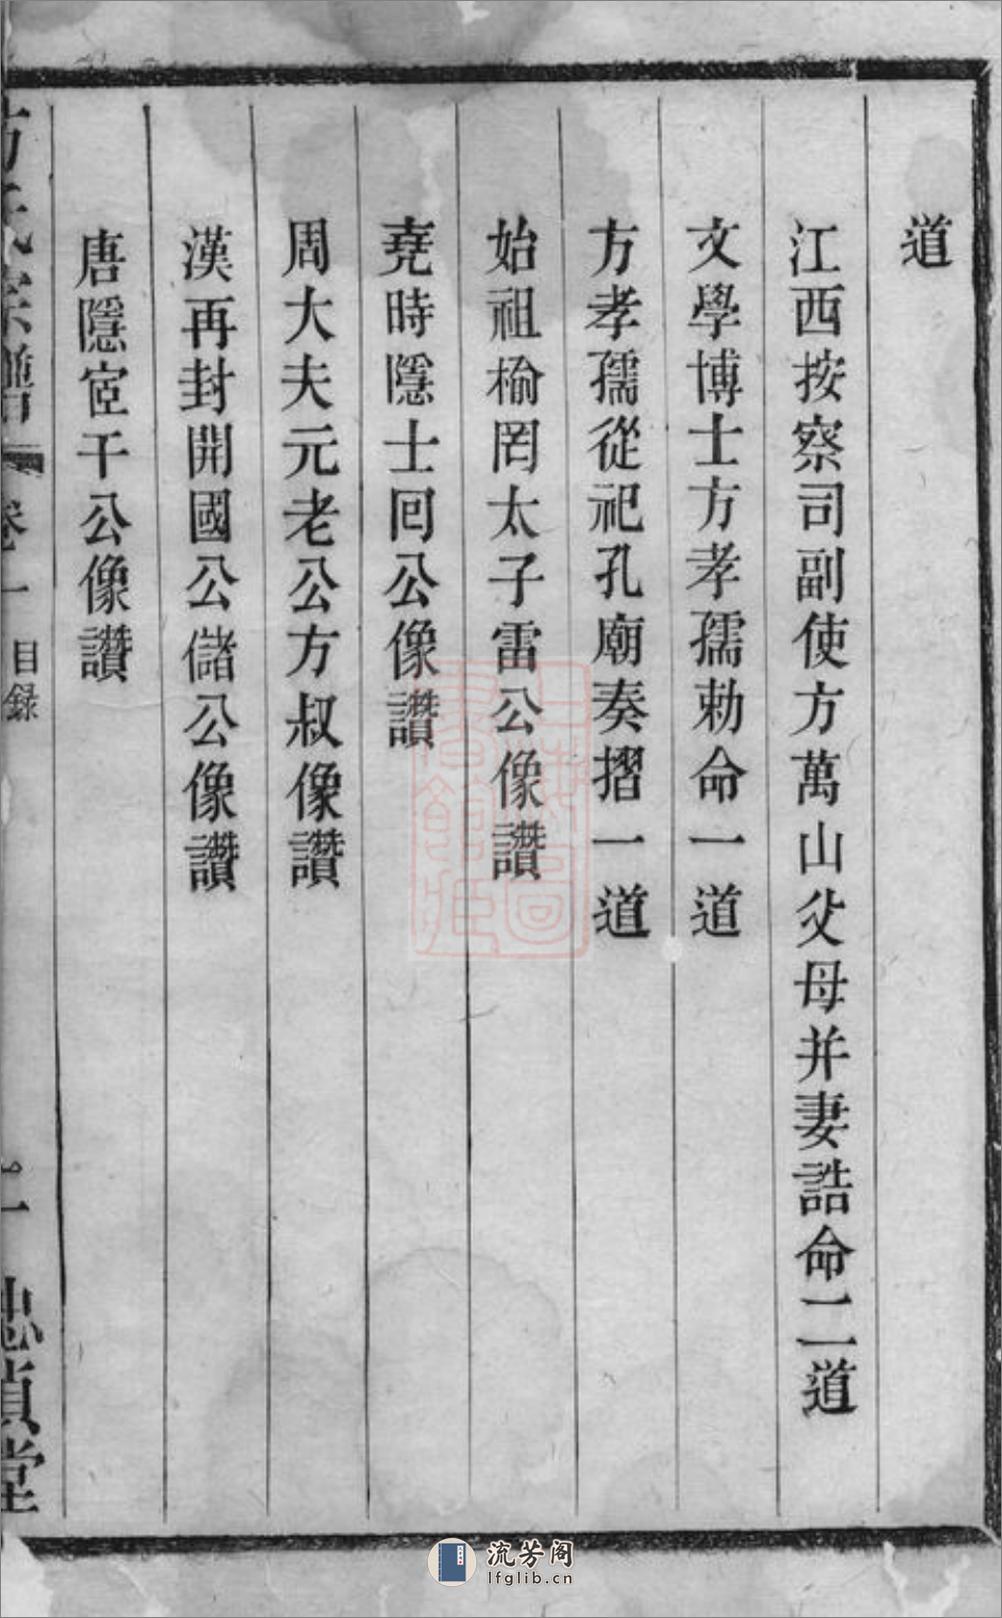 道
江西按察司副使方萬山父母并妻誥命二道
文學博士方孝孺勅命一道
方孝孺從祀孔廟奏摺一道
始祖榆罔太子雷公像讚
堯時隱士回公像讚
周大夫元老公方叔像讚
漢再封開國公儲公像讚
唐隱宦干公像讚
方氏宗譜 卷一 目録 忠貞堂
流芳阁
lfglib.cn